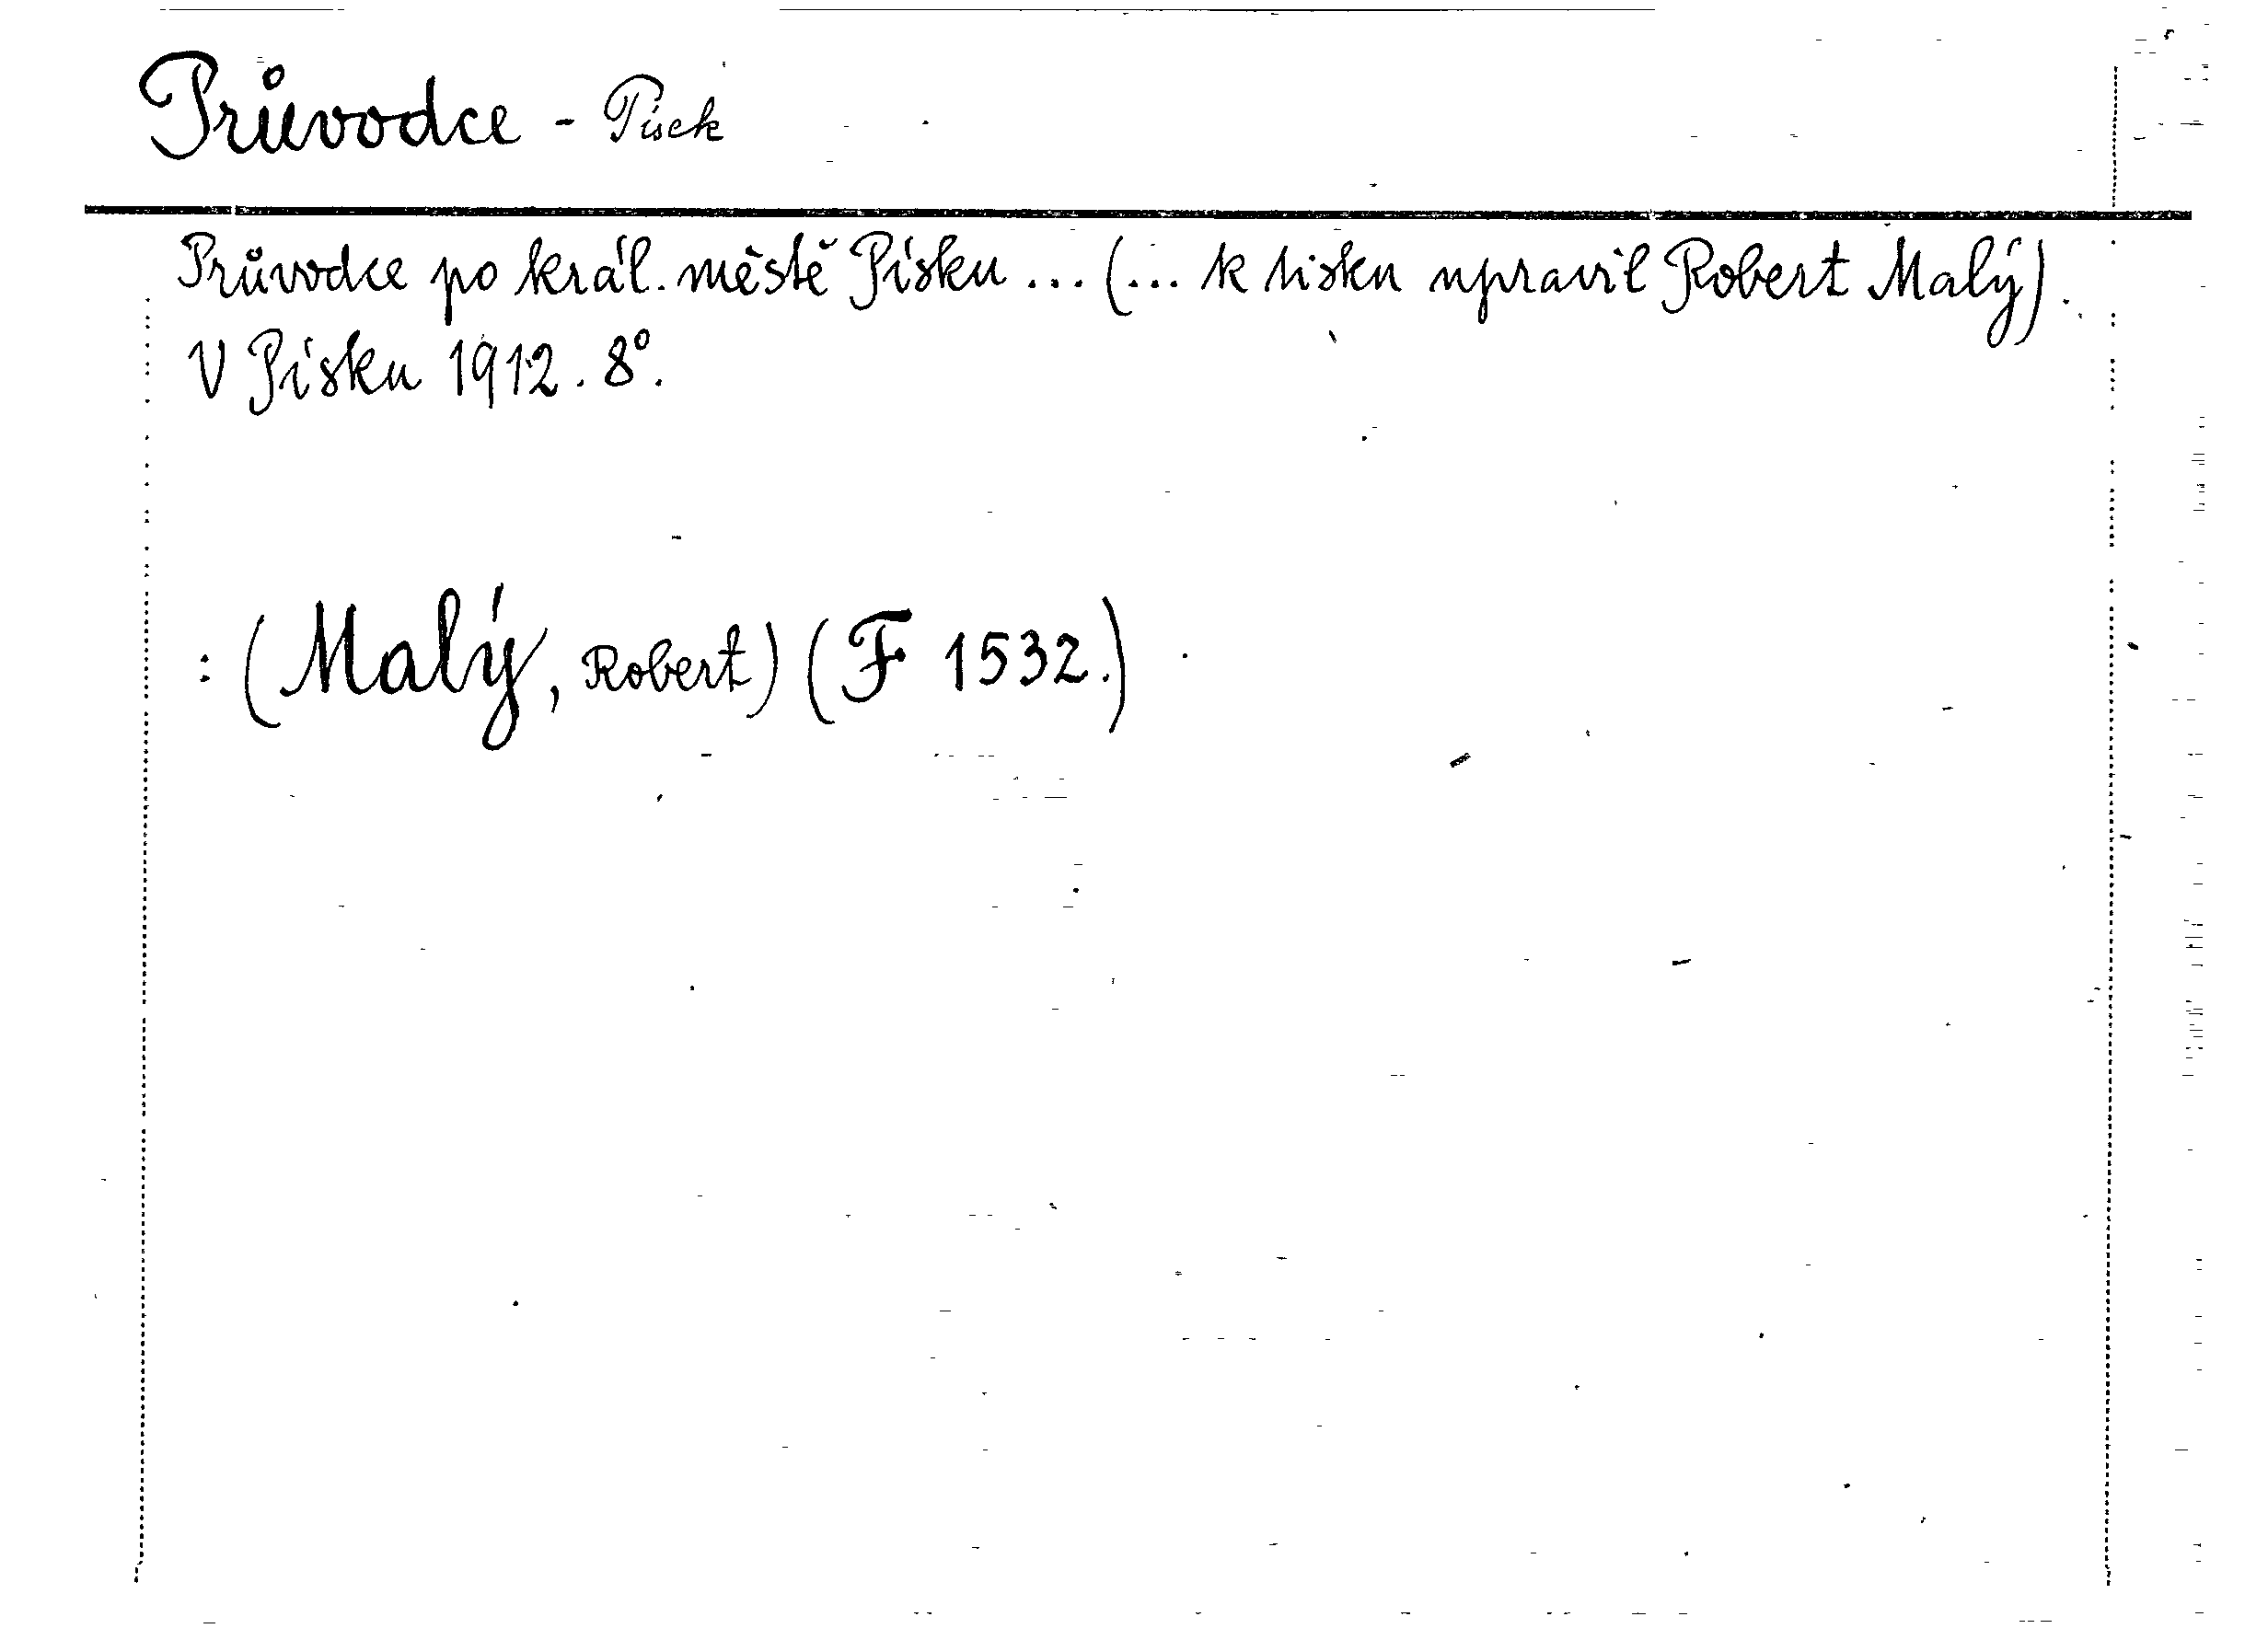 Průvodce - Písek
Průvodce po král. městě Písku ... (... k tisku upravil Robert Malý).
V Písku 1912. 8°.
: (Malý, Robert) (F 1532.)